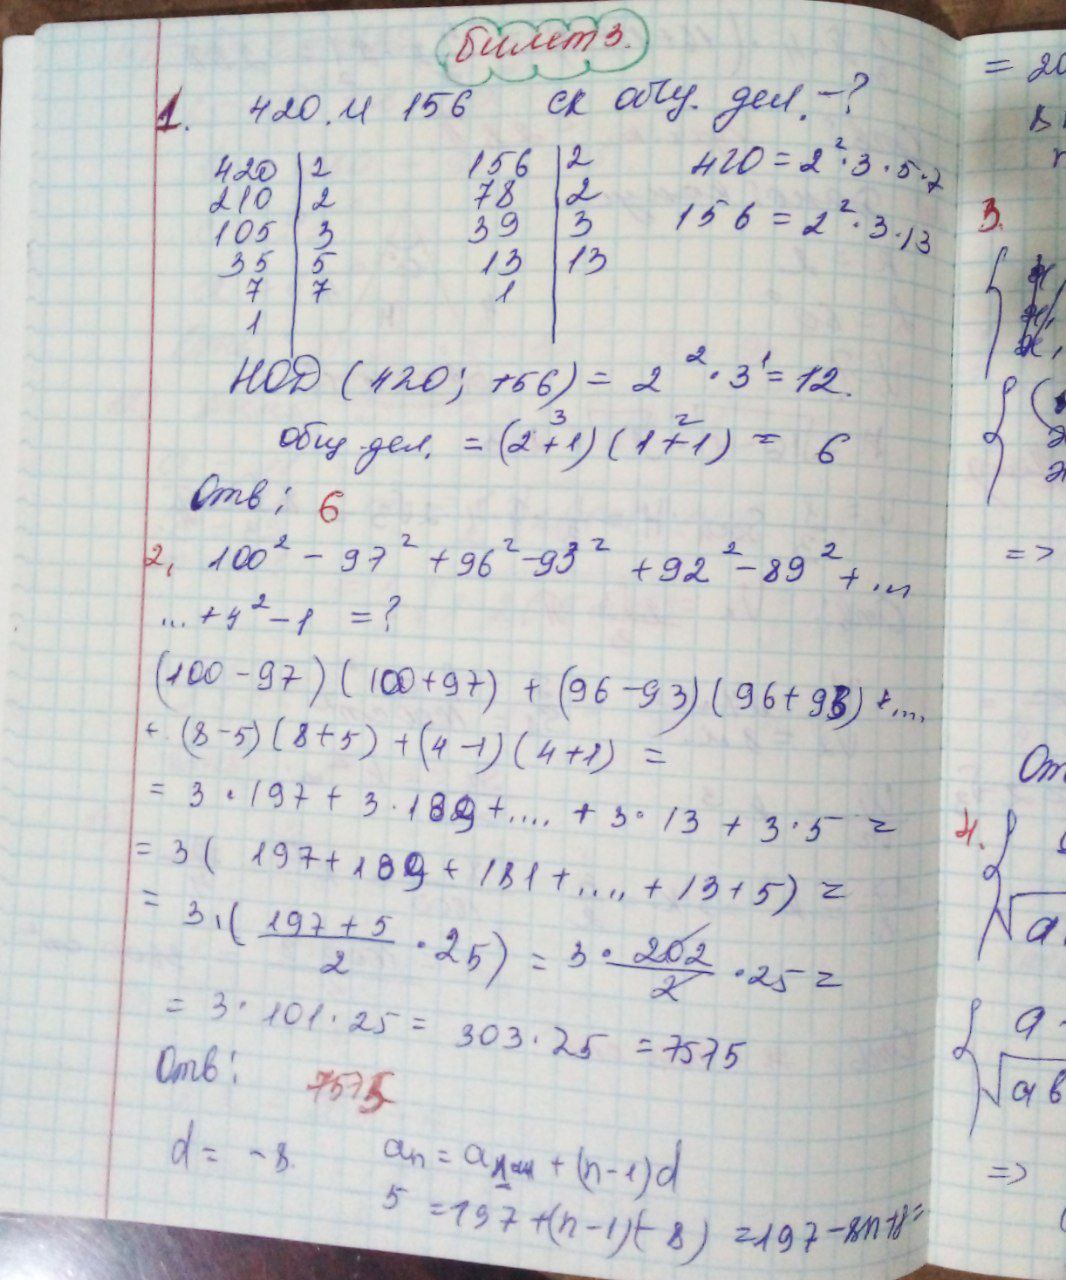 Билет 3.
1. 420 и 156 ск общ. дел. -?
420 | 2 156 | 2 420 = 2² · 3 · 5 · 7
210 | 2 78 | 2 156 = 2² · 3 · 13
105 | 3 39 | 3
35 | 5 13 | 13
7 | 7 1
1
НОД (420; 156) = 2² · 3¹ = 12.
общ дел. = (2+1)(1+1) = 6
3 2
Отв: 6
2. 100² - 97² + 96² - 93² + 92² - 89² + ...
... + 4² - 1 = ?
(100 - 97)(100 + 97) + (96 - 93)(96 + 93) + ...
+ (8 - 5)(8 + 5) + (4 - 1)(4 + 1) =
= 3 · 197 + 3 · 189 + .... + 3 · 13 + 3 · 5 =
= 3 ( 197 + 189 + 181 + .... + 13 + 5) =
= 3 · ( (197 + 5)/2 · 25) = 3 · 202/2 · 25 =
= 3 · 101 · 25 = 303 · 25 = 7575
Отв: 7575
d = -8 aₙ = a + (n-1)d
5 = 197 + (n-1)(-8) = 197 - 8n + 8 =
= 20
3.
=>
От
4.
√a
a
√ab
=>